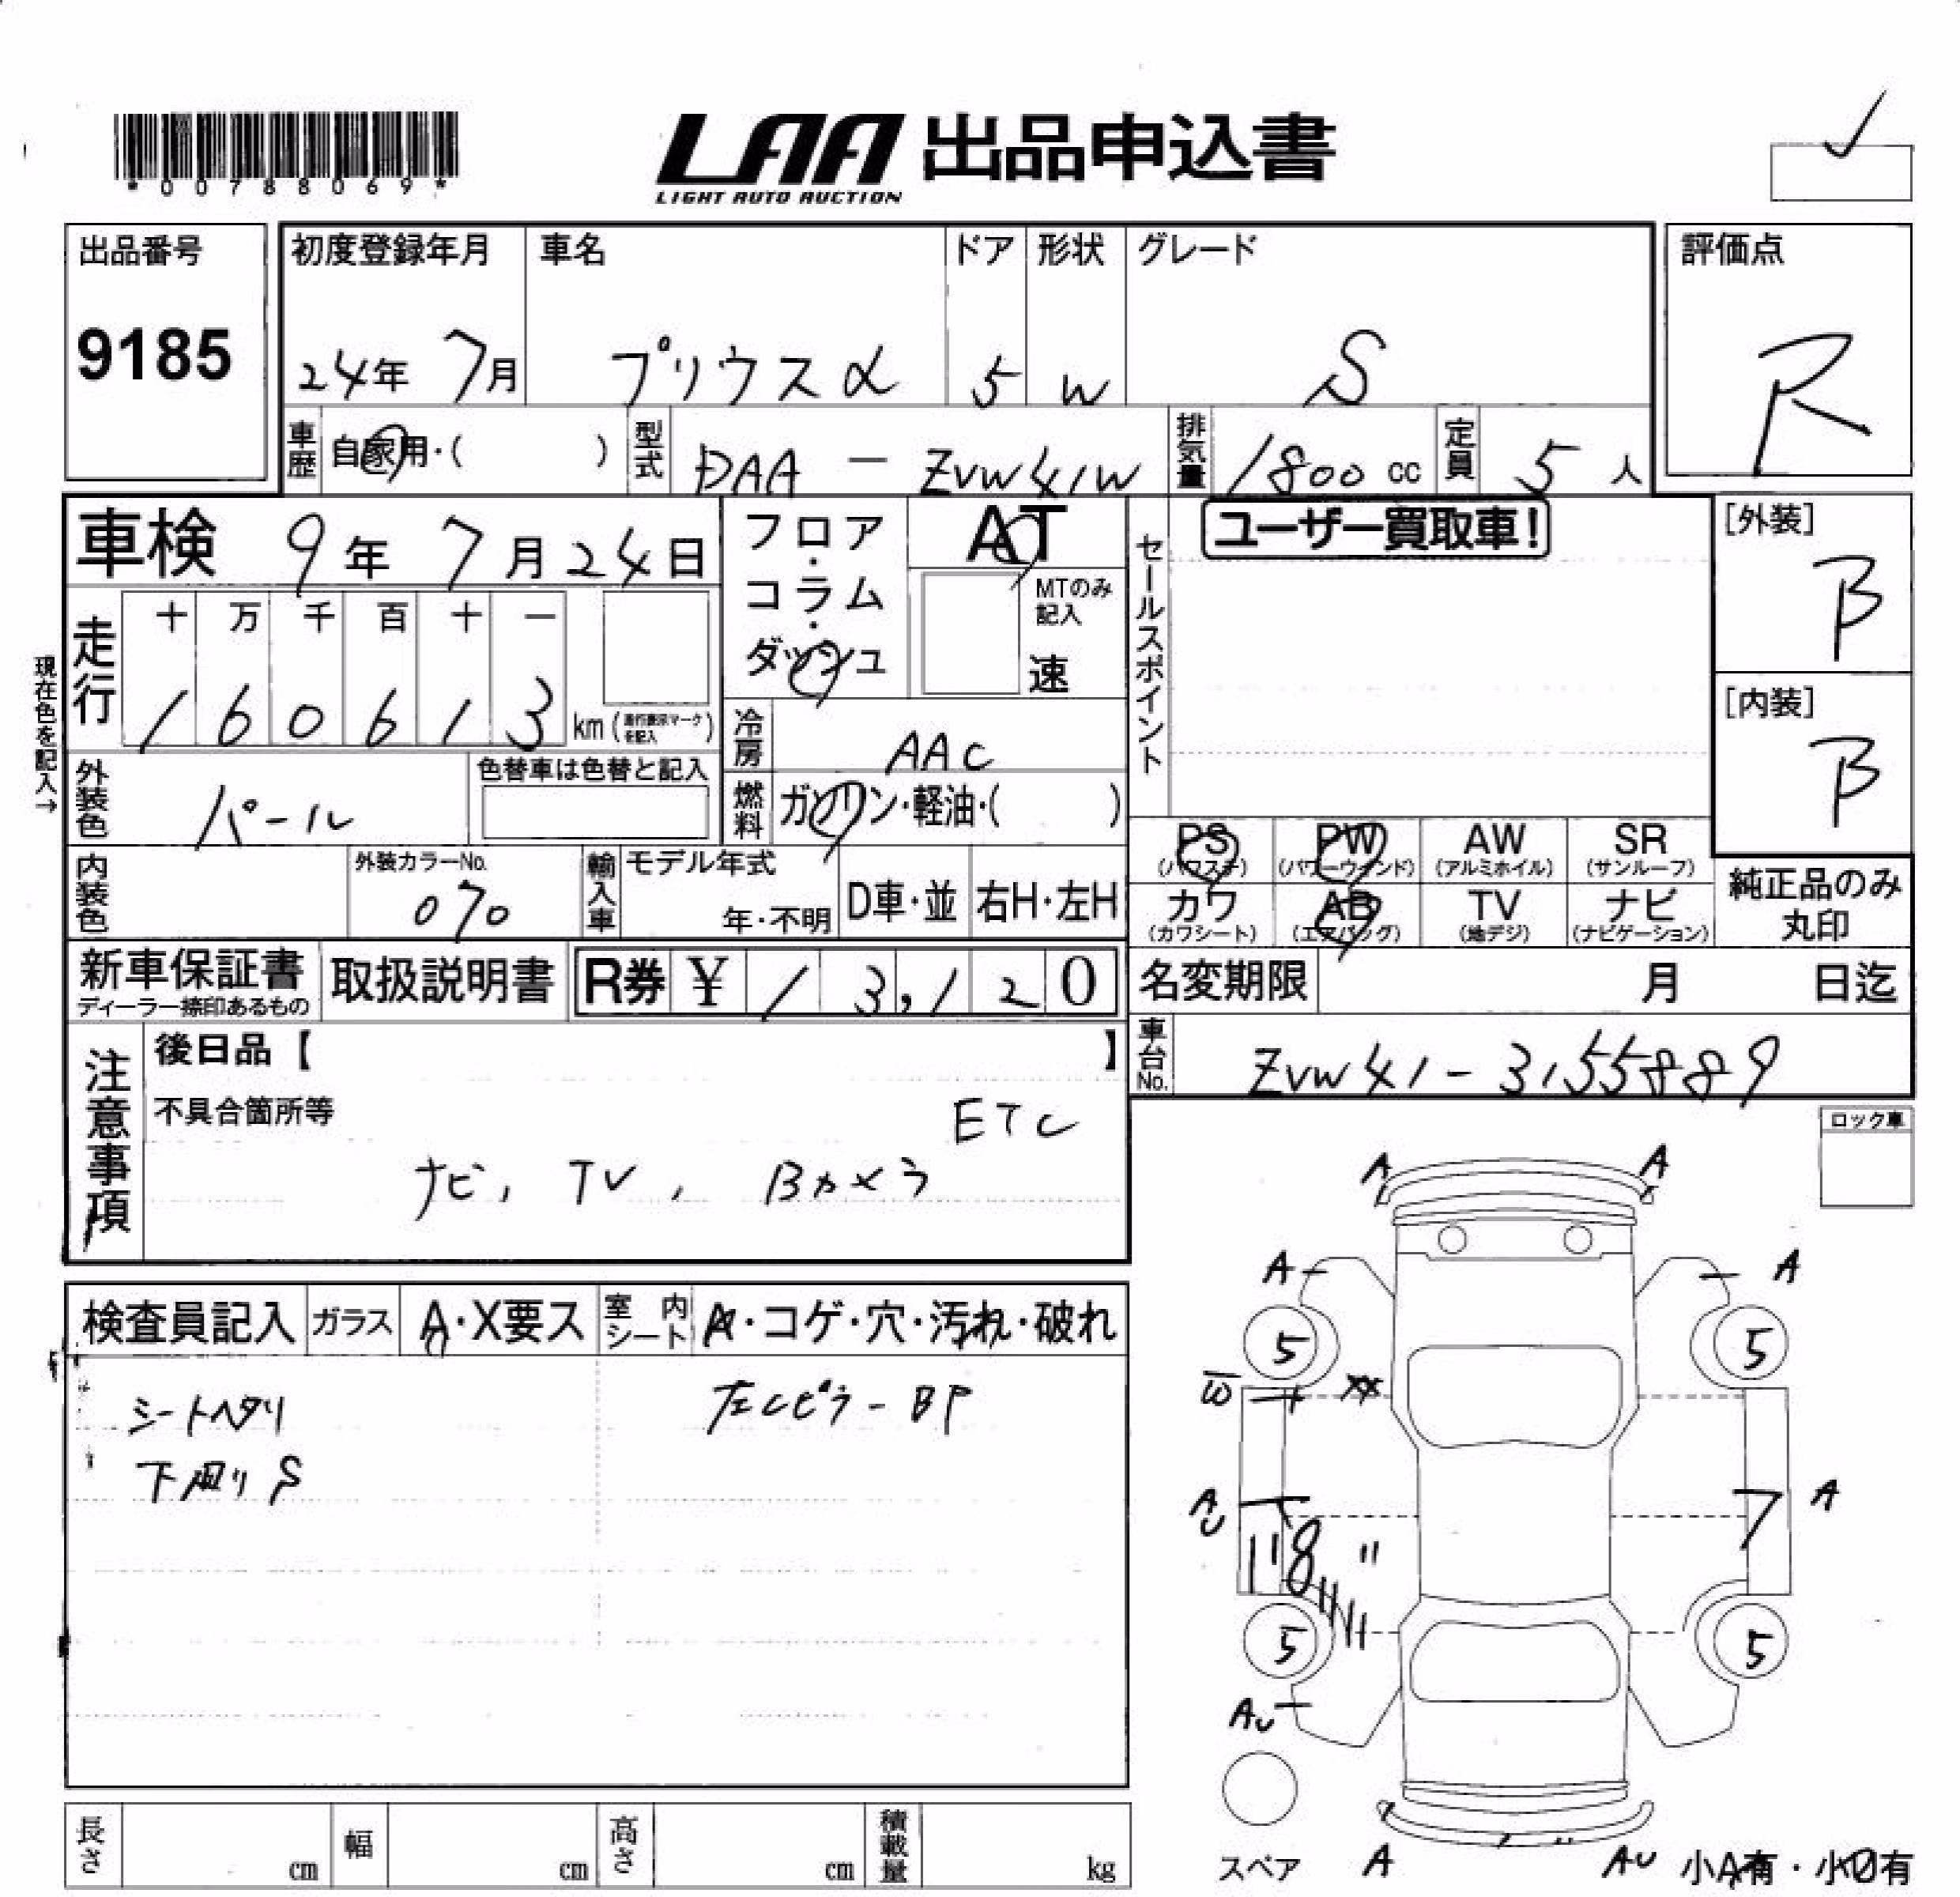 *00788069*
LAA 出品申込書
LIGHT AUTO AUCTION
出品番号
9185
初度登録年月
24年 7月
車名
プリウスα
ドア
5
形状
W
グレード
S
評価点
R
車歴 自家用・( )
型式 DAA - ZVW41W
排気量 1800 cc
定員 5 人
車検 9年 7月 24日
フロア・コラム・ダッシュ
AT
MTのみ記入
速
セールスポイント
ユーザー買取車!
[外装]
B
[内装]
B
現在色を記入→
走行
十 万 千 百 十 一
1 6 0 6 1 3 km (走行表示マークを記入)
冷房 AAC
燃料 ガソリン・軽油・( )
外装色 パール
色替車は色替と記入
内装色
外装カラーNo.
070
輸入車
モデル年式
年・不明
D車・並
右H・左H
PS (パワステ)
PW (パワーウインド)
AW (アルミホイル)
SR (サンルーフ)
カワ (カワシート)
AB (エアバッグ)
TV (地デジ)
ナビ (ナビゲーション)
純正品のみ丸印
新車保証書
ディーラー捺印あるもの
取扱説明書
R券 ¥ 13,120
名変期限 月 日迄
車台No. ZVW41-3155889
注意事項
後日品【 】
不具合箇所等
ETC
ナビ, TV, Bカメラ
ロック車
検査員記入
ガラス A・X要ス
室内シート A・コゲ・穴・汚れ・破れ
シートヘタリ
左Cピラー BP
下廻り S
A A
A A
5 5
XX
AU A
5 5
AU
スペア
A AU
小A有・小U有
長さ cm
幅 cm
高さ cm
積載量 kg